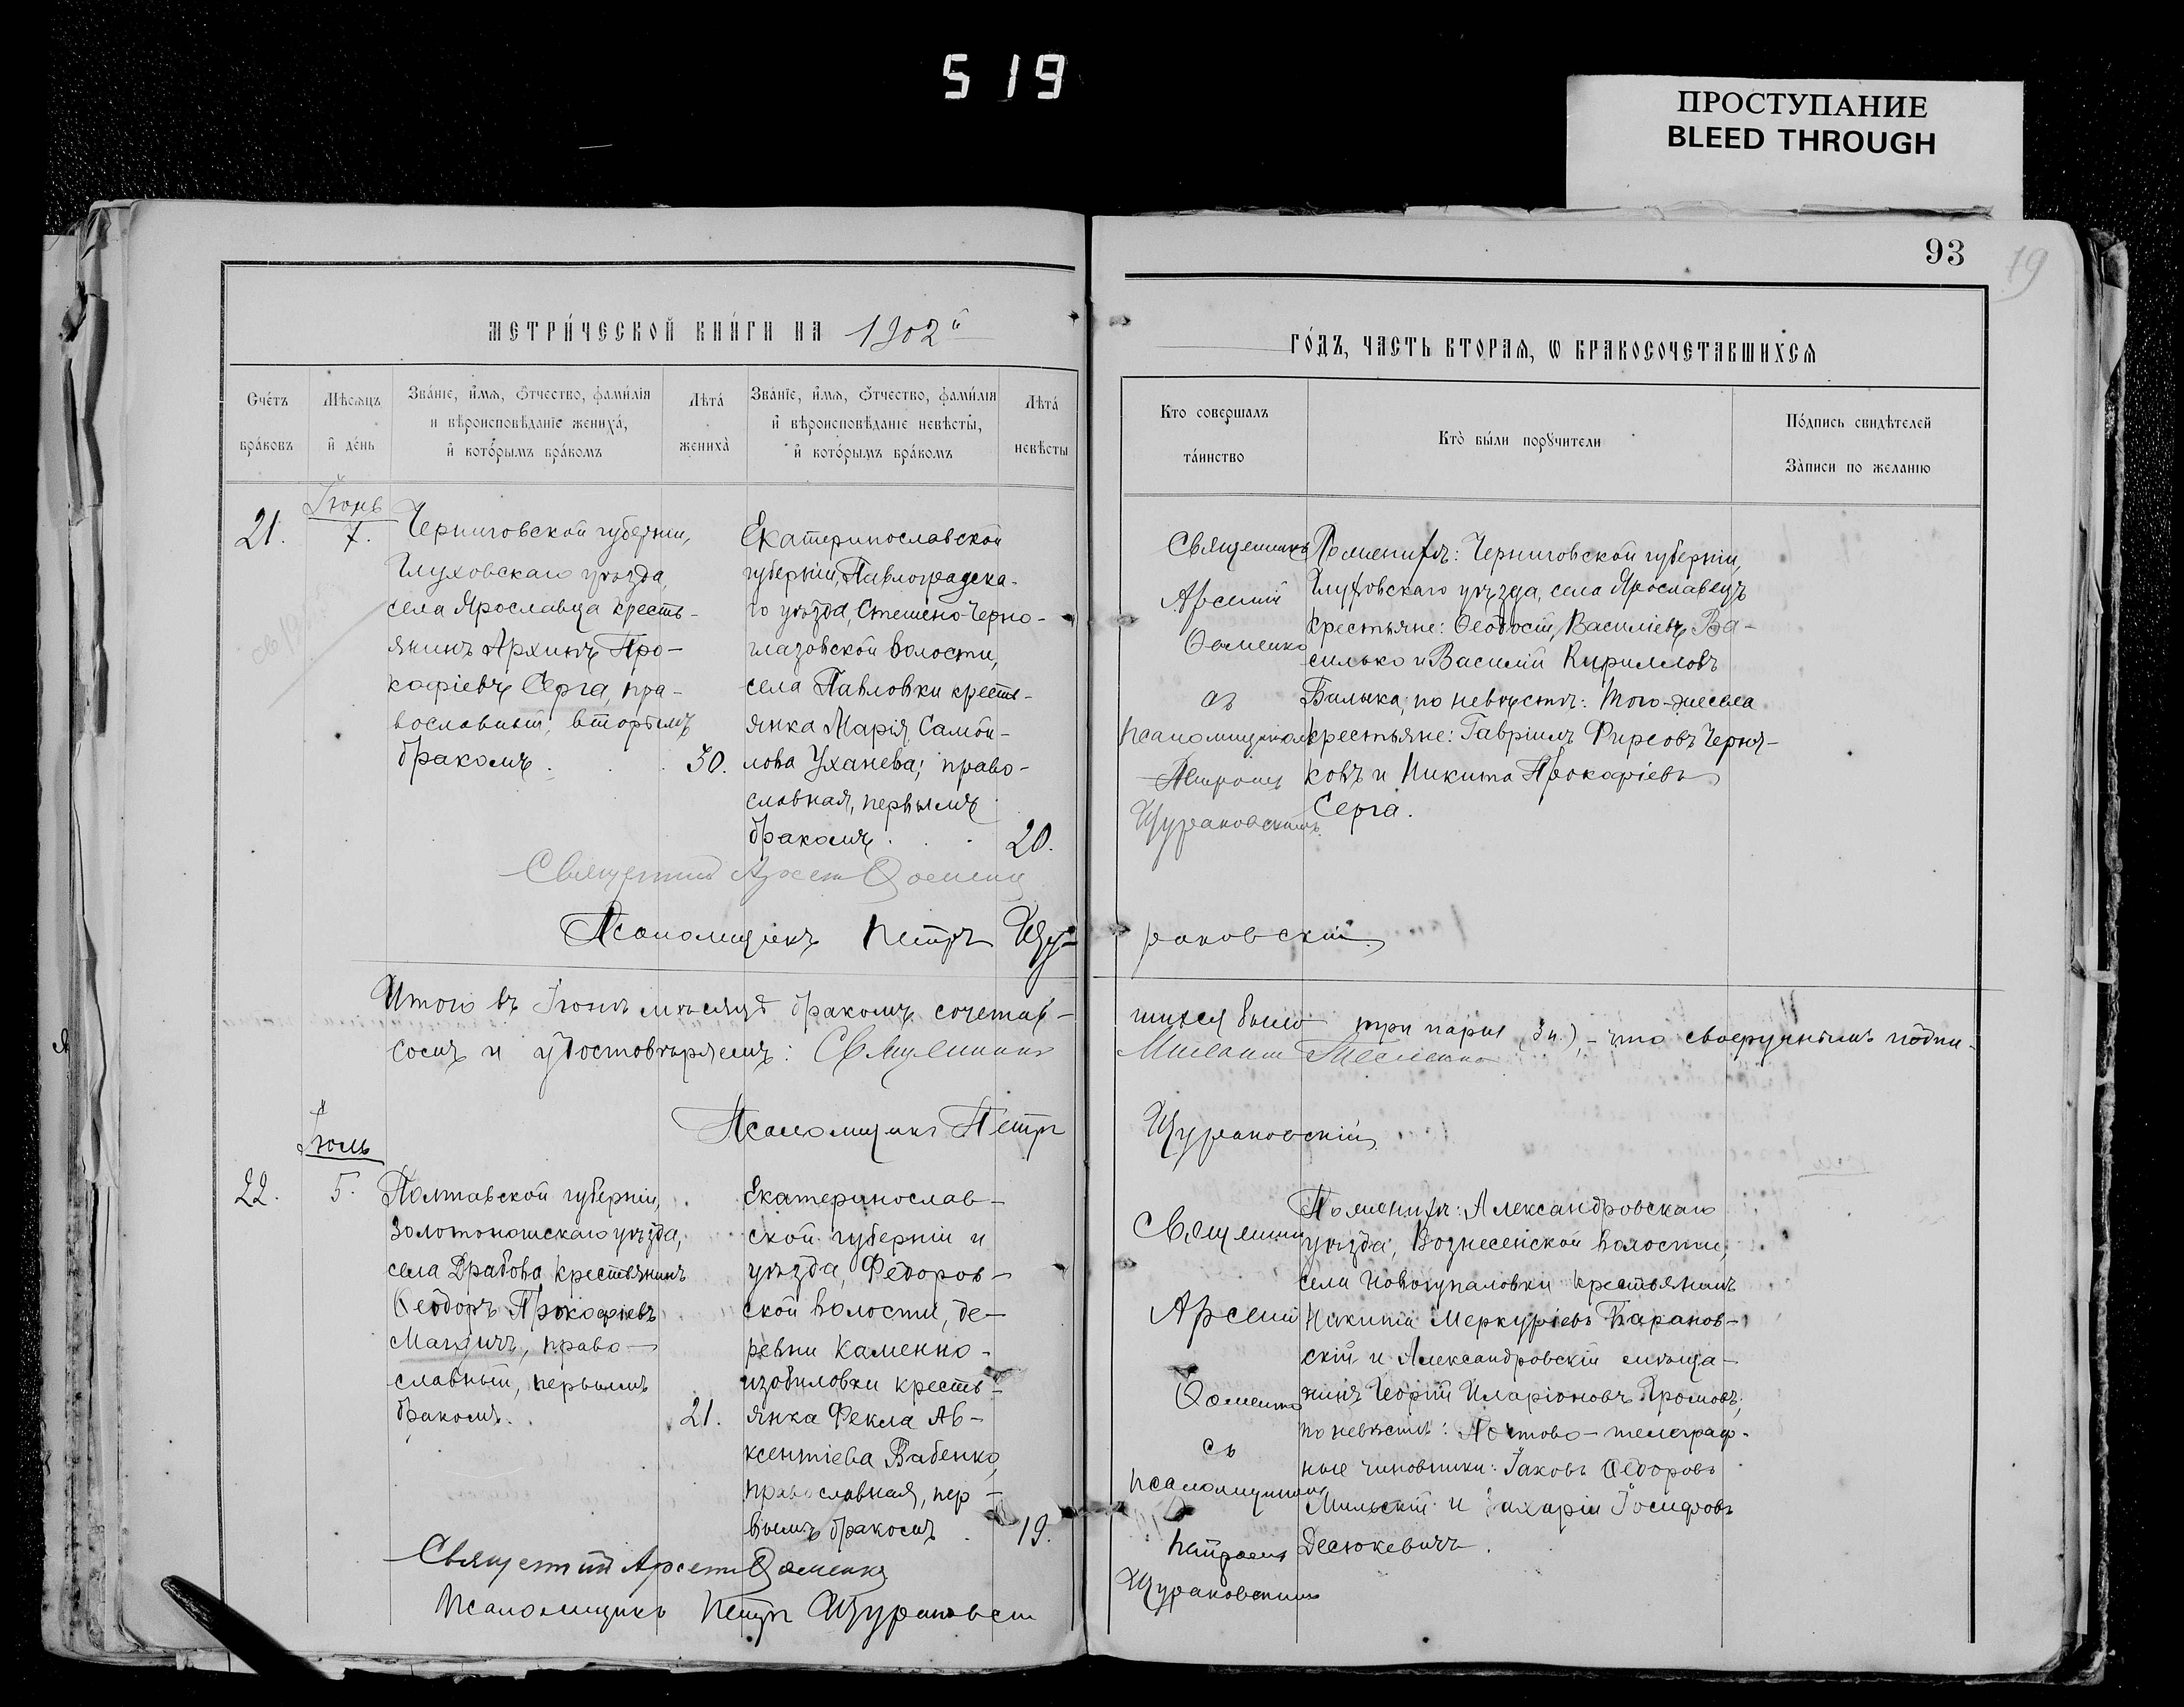 519
ПРОСТУПАНИЕ
BLEED THROUGH
93
19
МЕТРИ́ЧЕСКОЙ КНИ́ГИ НА 1902й
ГО́ДЪ, ЧАСТЬ ВТОРАЯ, Ѡ БРАКОСОЧЕТАВШИХСЯ
Счетъ
бра́ковъ
Мѣсяцъ
и де́нь
Зва́ніе, и́мя, ѻтчество, фами́лія
и вѣроисповѣданіе жениха̀,
и кото́рымъ бра́комъ
Лѣта̀
жениха̀
Зва́ніе, и́мя, ѻтчество, фами́лія
и вѣроисповѣданіе невѣсты,
и кото́рымъ бра́комъ
Лѣта̀
невѣсты
Кто совершалъ
та́инство
Кто̀ бы́ли порꙋчители
По́дпись свидѣтелей
За́писи по желанію
21.
Іюнь
7.
Черниговской губерніи,
Глуховскаго уѣзда,
села Ярославца кресть-
янинъ Архипъ Про-
кофіевъ Серга, пра-
вославный, вторымъ
бракомъ . . . 30.
Екатеринославской
губерніи, Павлоградска-
го уѣзда, Степено-Черно-
глазовской волости,
села Павловки кресть-
янка Марія Самой-
лова Уханева; право-
славная, первымъ
бракомъ . . . 20.
Священникъ
Арсеній
Ѳоменко
съ
псаломщикомъ
Петромъ
Щураковскимъ
По женихѣ: Черниговской губерніи,
Глуховскаго уѣзда, села Ярославецъ
крестьяне: Ѳеодосій Василіевъ Ва-
силько и Василій Кирилловъ
Балыка; по невѣстѣ: того-же села
крестьяне: Гавріилъ Фирсовъ Черня-
ковъ и Никита Прокофіевъ
Серга.
Священникъ Арсеній Ѳоменко
Псаломщикъ Петръ Щу-
раковскій
Итого въ Іюнѣ мѣсяцѣ бракомъ сочетав-
шихся было три пары (3 п.), - что своеручнымъ подпи-
сомъ и удостовѣряемъ: Священникъ
Псаломщикъ Петръ
Щураковскій
Іюль
22.
5.
Полтавской губерніи,
Золотоношскаго уѣзда,
села Драбова крестьянинъ
Ѳеодоръ Прокофіевъ
право-
славный, первымъ
бракомъ. . 21.
Екатеринослав-
ской губерніи и
уѣзда, Федоров-
ской волости, де-
ревни Каменно-
изобиловки кресть-
янка Фекла Ав-
ксентіева Бабенко,
православная, пер-
вымъ бракомъ . 19.
Священникъ
Арсеній
Ѳоменко
съ
псаломщикомъ
Петромъ
Щураковскимъ
По женихѣ: Александровскаго
уѣзда, Вознесенской волости,
села Новогупаловки крестьянинъ
Меркуріевъ Барановъ-
скій и Александровскій мѣща-
нинъ Георгій Иларіоновъ
по невѣстѣ: Почтово-телеграф-
ные чиновники: Іаковъ Ѳедоровъ
Мильскій и Захарій Іосифовъ
Десюкевичъ.
Священникъ Арсеній Ѳоменко
Псаломщикъ Петръ Щураковскій